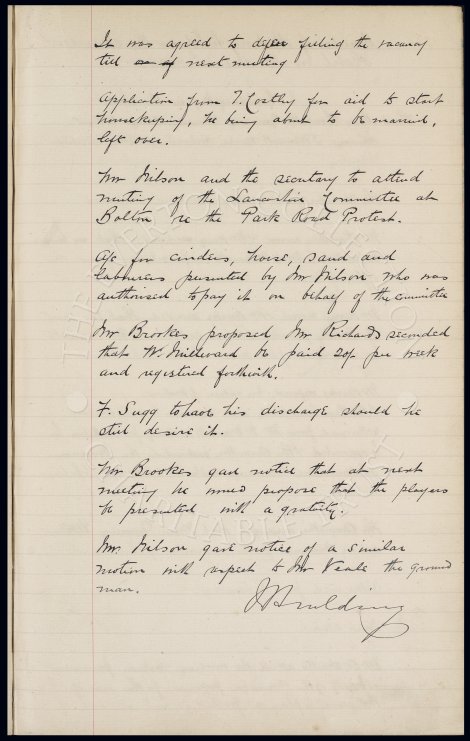 It was agreed to defer filling the vacancy
till next meeting
Application from T. Costley for aid to start
housekeeping, he being about to be married,
left over.
Mr Wilson and the secretary to attend
meeting of the Lancashire Committee at
Bolton re the Park Road Protest.
A/c for cinders, horse, sand and
labourers presented by Mr Wilson who was
authorised to pay it on behalf of the committee
Mr Brookes proposed Mr Richards seconded
that W. Millward be paid 20/- per week
and registered forthwith.
F. Sugg to have his discharge should he
still desire it.
Mr Brookes gave notice that at next
meeting he would propose that the players
be presented with a gratuity.
Mr. Wilson gave notice of a similar
motion with respect to Mr the ground
man.
THE EVERTON COLLECTION
CHARITABLE TRUST